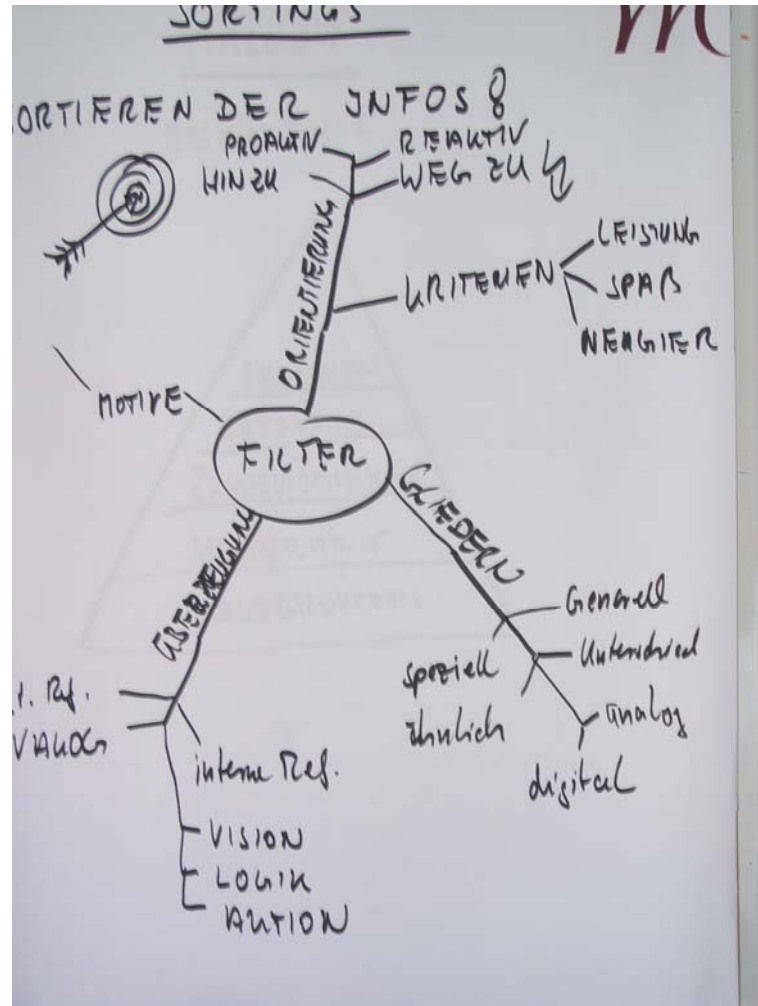 SORTINGS
ORTIEREN DER INFOS
PROAKTIV
REAKTIV
HIN ZU
WEG ZU
ORIENTIERUNG
KRITERIEN
LEISTUNG
SPAß
NEUGIER
MOTIVE
FILTER
GLIEDERN
Generell
speziell
Unterschied
ähnlich
analog
digital
ÜBERZEUGUNG
t. Ref.
interne Ref.
VISION
LOGIK
AKTION